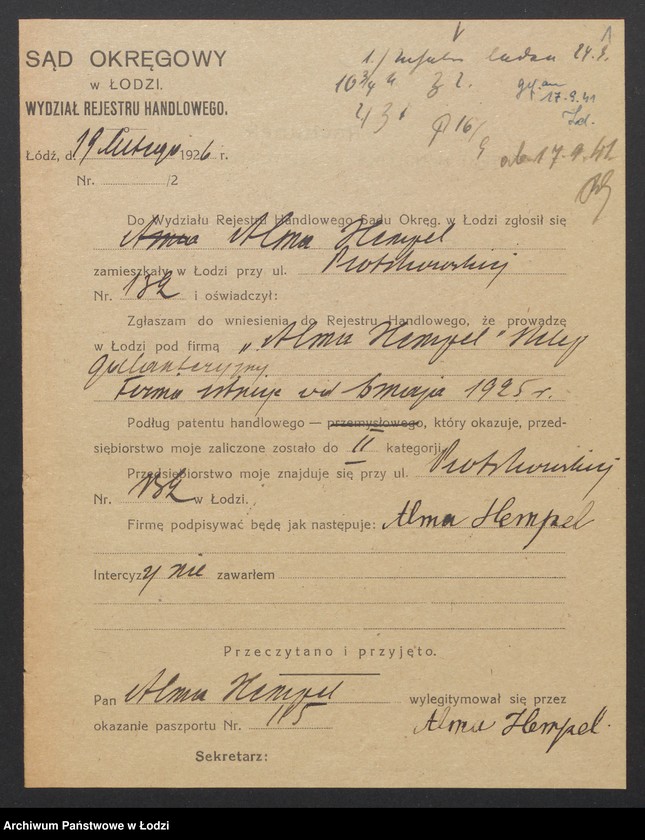 SĄD OKRĘGOWY
w ŁODZI.
WYDZIAŁ REJESTRU HANDLOWEGO.
Łódź, d. 19 lutego 1926 r.
Nr. /2
24.9.
17.9.41
17.9.41
Do Wydziału Rejestru Handlowego Sądu Okręg. w Łodzi zgłosił się
Anna Alma Hempel
zamieszkały w Łodzi przy ul. Piotrkowskiej
Nr. 132 i oświadczył:
Zgłaszam do wniesienia do Rejestru Handlowego, że prowadzę
w Łodzi pod firmą „Alma Hempel" Sklep
galanteryjny
Firma istnieje od 6 maja 1925 r.
Podług patentu handlowego — przemysłowego, który okazuje, przed-
siębiorstwo moje zaliczone zostało do II kategorji
Przedsiębiorstwo moje znajduje się przy ul. Piotrkowskiej
Nr. 132 w Łodzi.
Firmę podpisywać będę jak następuje: Alma Hempel
Intercyzy nie zawarłem
Przeczytano i przyjęto.
Pan Alma Hempel wylegitymował się przez
okazanie paszportu Nr. 115 Alma Hempel.
Sekretarz:
Archiwum Państwowe w Łodzi